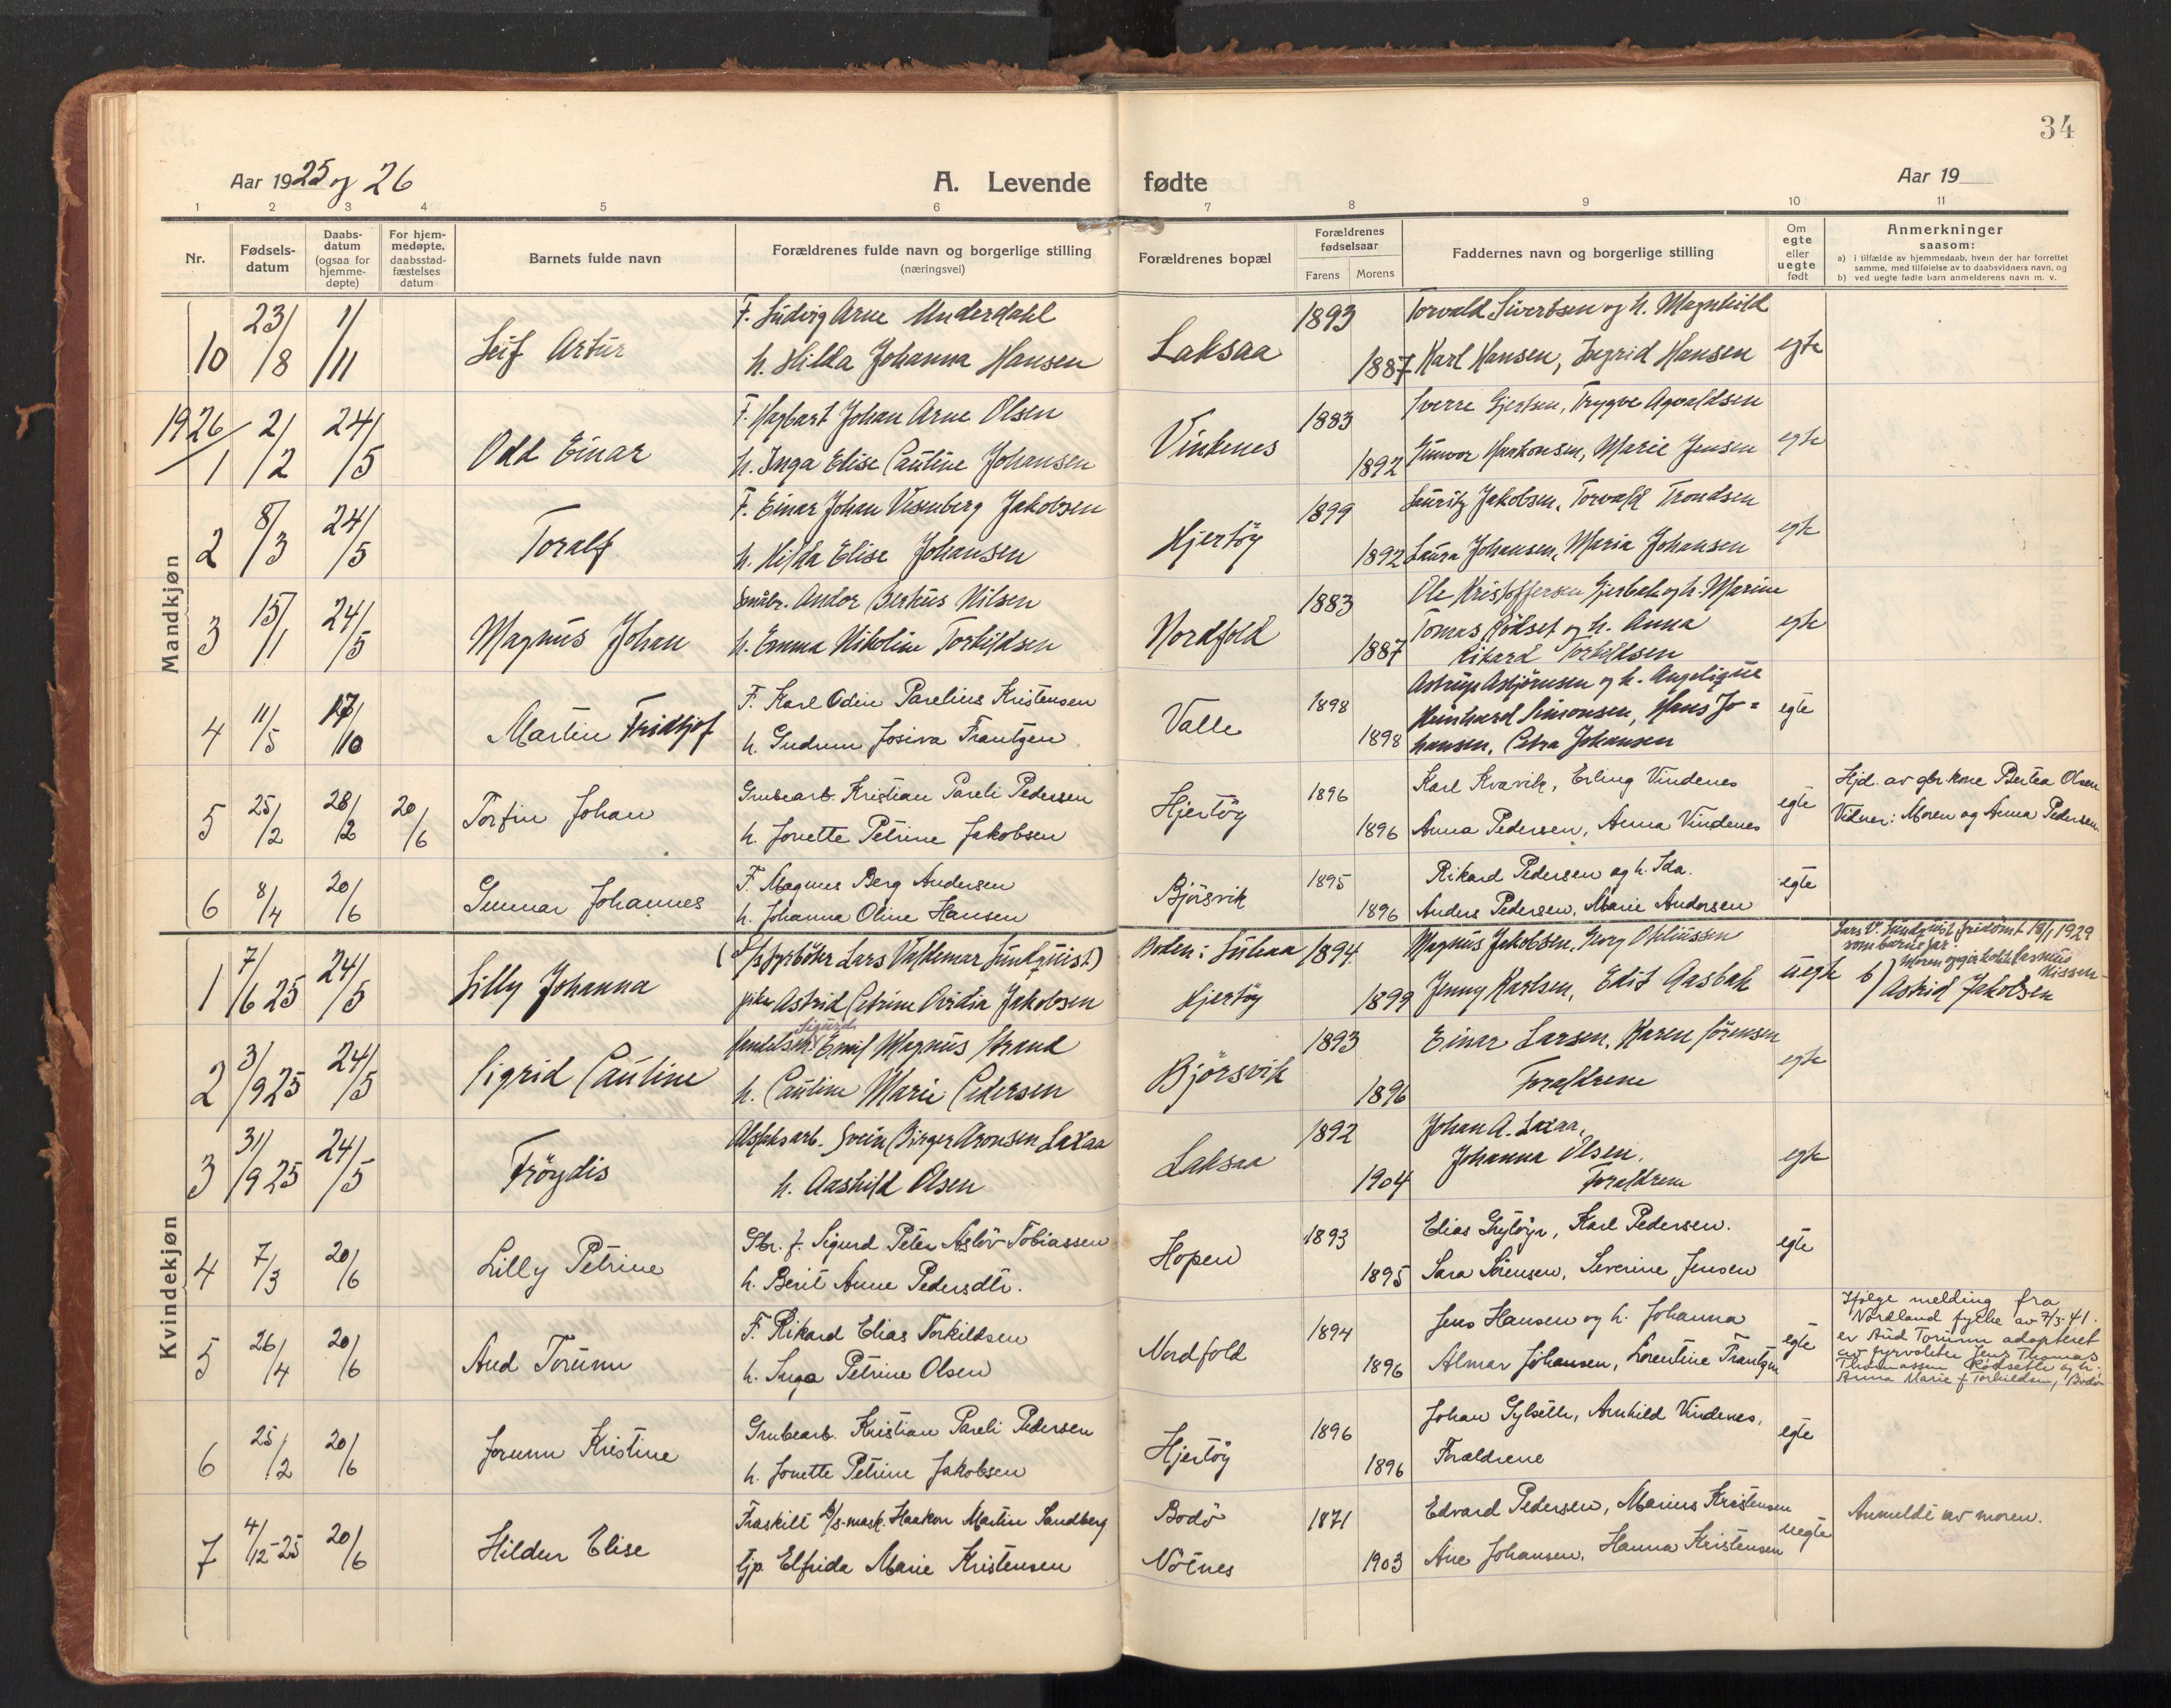 34
Aar 1925 og 26
A. Levende fødte
Aar 19
1 2 3 4 5 6 7 8 9 10 11
Nr.
Fødsels-
datum
Daabs-
datum
(ogsaa for
hjemme-
døpte)
For hjem-
medøpte,
daabsstad-
fæstelses
datum
Barnets fulde navn
Forældrenes fulde navn og borgerlige stilling
(næringsvei)
Forældrenes bopæl
Forældrenes
fødselsaar
Farens Morens
Faddernes navn og borgerlige stilling
Om
egte
eller
uegte
født
Anmerkninger
saasom:
a) i tilfælde av hjemmedaab, hvem der har forrettet
samme, med tilføielse av to daabsvidners navn, og
b) ved uegte fødte barn anmelderens navn m. v.
Mandkjøn
10 23/8 1/11 Leif Artur
F. Ludvig Arne Underdahl
h. Hilda Johanna Hansen
Laksaa 1893 1887
Torvald Sivertsen og h. Magnhild
Karl Hansen, Ingrid Hansen
egte
1926
1 2/2 24/5 Odd Einar
F. Hagbart Johan Arne Olsen
h. Inga Elise Pauline Johansen
Vinkenes 1883 1892
Sverre Gjertsen, Trygve Agvaldsen
Gunvor Haakonsen, Marie Jensen
egte
2 8/3 24/5 Toralf
F. Einar Johan Vesenberg Jakobsen
h. Hilda Elise Johansen
Hjertöy 1899 1892
Lauritz Jakobsen, Torvald Trondsen
Laura Johansen, Maria Johansen
egte
3 15/1 24/5 Magnus Johan
Småbr. Andor Berhus Nilsen
h. Emma Nikoline Torkildsen
Nordfold 1883 1887
Ole Kristoffersen Gjerbak og h. Marine
Tomas Rödset og h. Anna
Rikard Torkildsen
egte
4 11/5 17/10 Martin Fridtjof
F. Karl Odin Parelius Kristensen
h. Gudrun Josiva Frantzen
Valle 1898 1898
Astrup Asbjörnsen og h. Angelique
Reinhard Simonsen, Hans Jo=
hansen, Petra Johansen
egte
5 25/2 28/2 20/6 Torfin Johan
Grubearb. Kristian Pareli Pedersen
h. Jonette Petrine Jakobsen
Hjertöy 1896 1896
Karl Kvavik, Erling Vindenes
Anna Pedersen, Anna Vindenes
egte
Hjd. av gbr. kone Bertea Olsen
Vidner: Moren og Anna Pedersen.
6 8/4 20/6 Gunnar Johannes
F. Magnus Berg Andersen
h. Johanna Oline Hansen
Björsvik 1895 1896
Rikard Pedersen og h. Ida.
Anders Pedersen, Marie Andersen
egte
Kvindekjøn
1 7/6 25 24/5 Lilly Johanna
(D/s fyrböter Lars Valdemar Sundquist)
pike Astrid Petrine Ovidia Jakobsen
Boden: Luleaa 1894
Hjertöy 1899
Magnus Jakobsen, Georg Opliussen
Jenny Karlsen, Edit Aasbak
uegte
Lars V. Sundquist fridömt 18/1 1929
som barnefar.
b) Astrid Jakobsen
2 3/9 25 24/5 Sigrid Pauline
Sigurd
Handelsm. Emil Magnus Strand
h. Pauline Marie Pedersen
Björsvik 1893 1896
Einar Larsen, Karen Sörensen
Forældrene
egte
3 31/9 25 24/5 Fröydis
Asfaltsarb. Svein Birger Aronsen Laxaa
h. Aashild Olsen
Laksaa 1892 1904
Johan A. Laxaa,
Johanna Olsen,
Forældrene
egte
4 7/3 20/6 Lilly Petrine
Gbr. f. Sigurd Peter Aslöv Tobiassen
h. Berit Anne Pedersdtr.
Hopen 1893 1895
Elias Grytöyr, Karl Pedersen.
Sara Sörensen, Severine Jensen
egte
5 26/4 20/6 Aud Torunn
F. Rikard Elias Torkildsen
h. Inga Petrine Olsen
Nordfold 1894 1896
Jens Hansen og h. Johanna
Almar Johansen, Lorentine Frantzen
egte
Ifølge melding fra
Nordland fylke av 7/3-41.
er Aud Torunn adopteret
av fyrvokter Jens Thomas
Thomassen Rödseth og h.
Anna Marie f. Torkildsen, Bodö
6 25/2 20/6 Jorunn Kristine
Grubearb. Kristian Pareli Pedersen
h. Jonette Petrine Jakobsen
Hjertöy 1896 1896
Johan Gylseth, Arnhild Vindenes,
Forældrene
egte
7 4/12-25 20/6 Hildur Elise
Fraskilt D/s-mask. Haakon Martin Sandberg
Tjp. Elfrida Marie Kristensen
Bodö 1871
Nötnes 1903
Edvard Pedersen, Marius Kristensen
Ane Johansen, Hanna Kristensen
uegte
Anmeldt av moren.